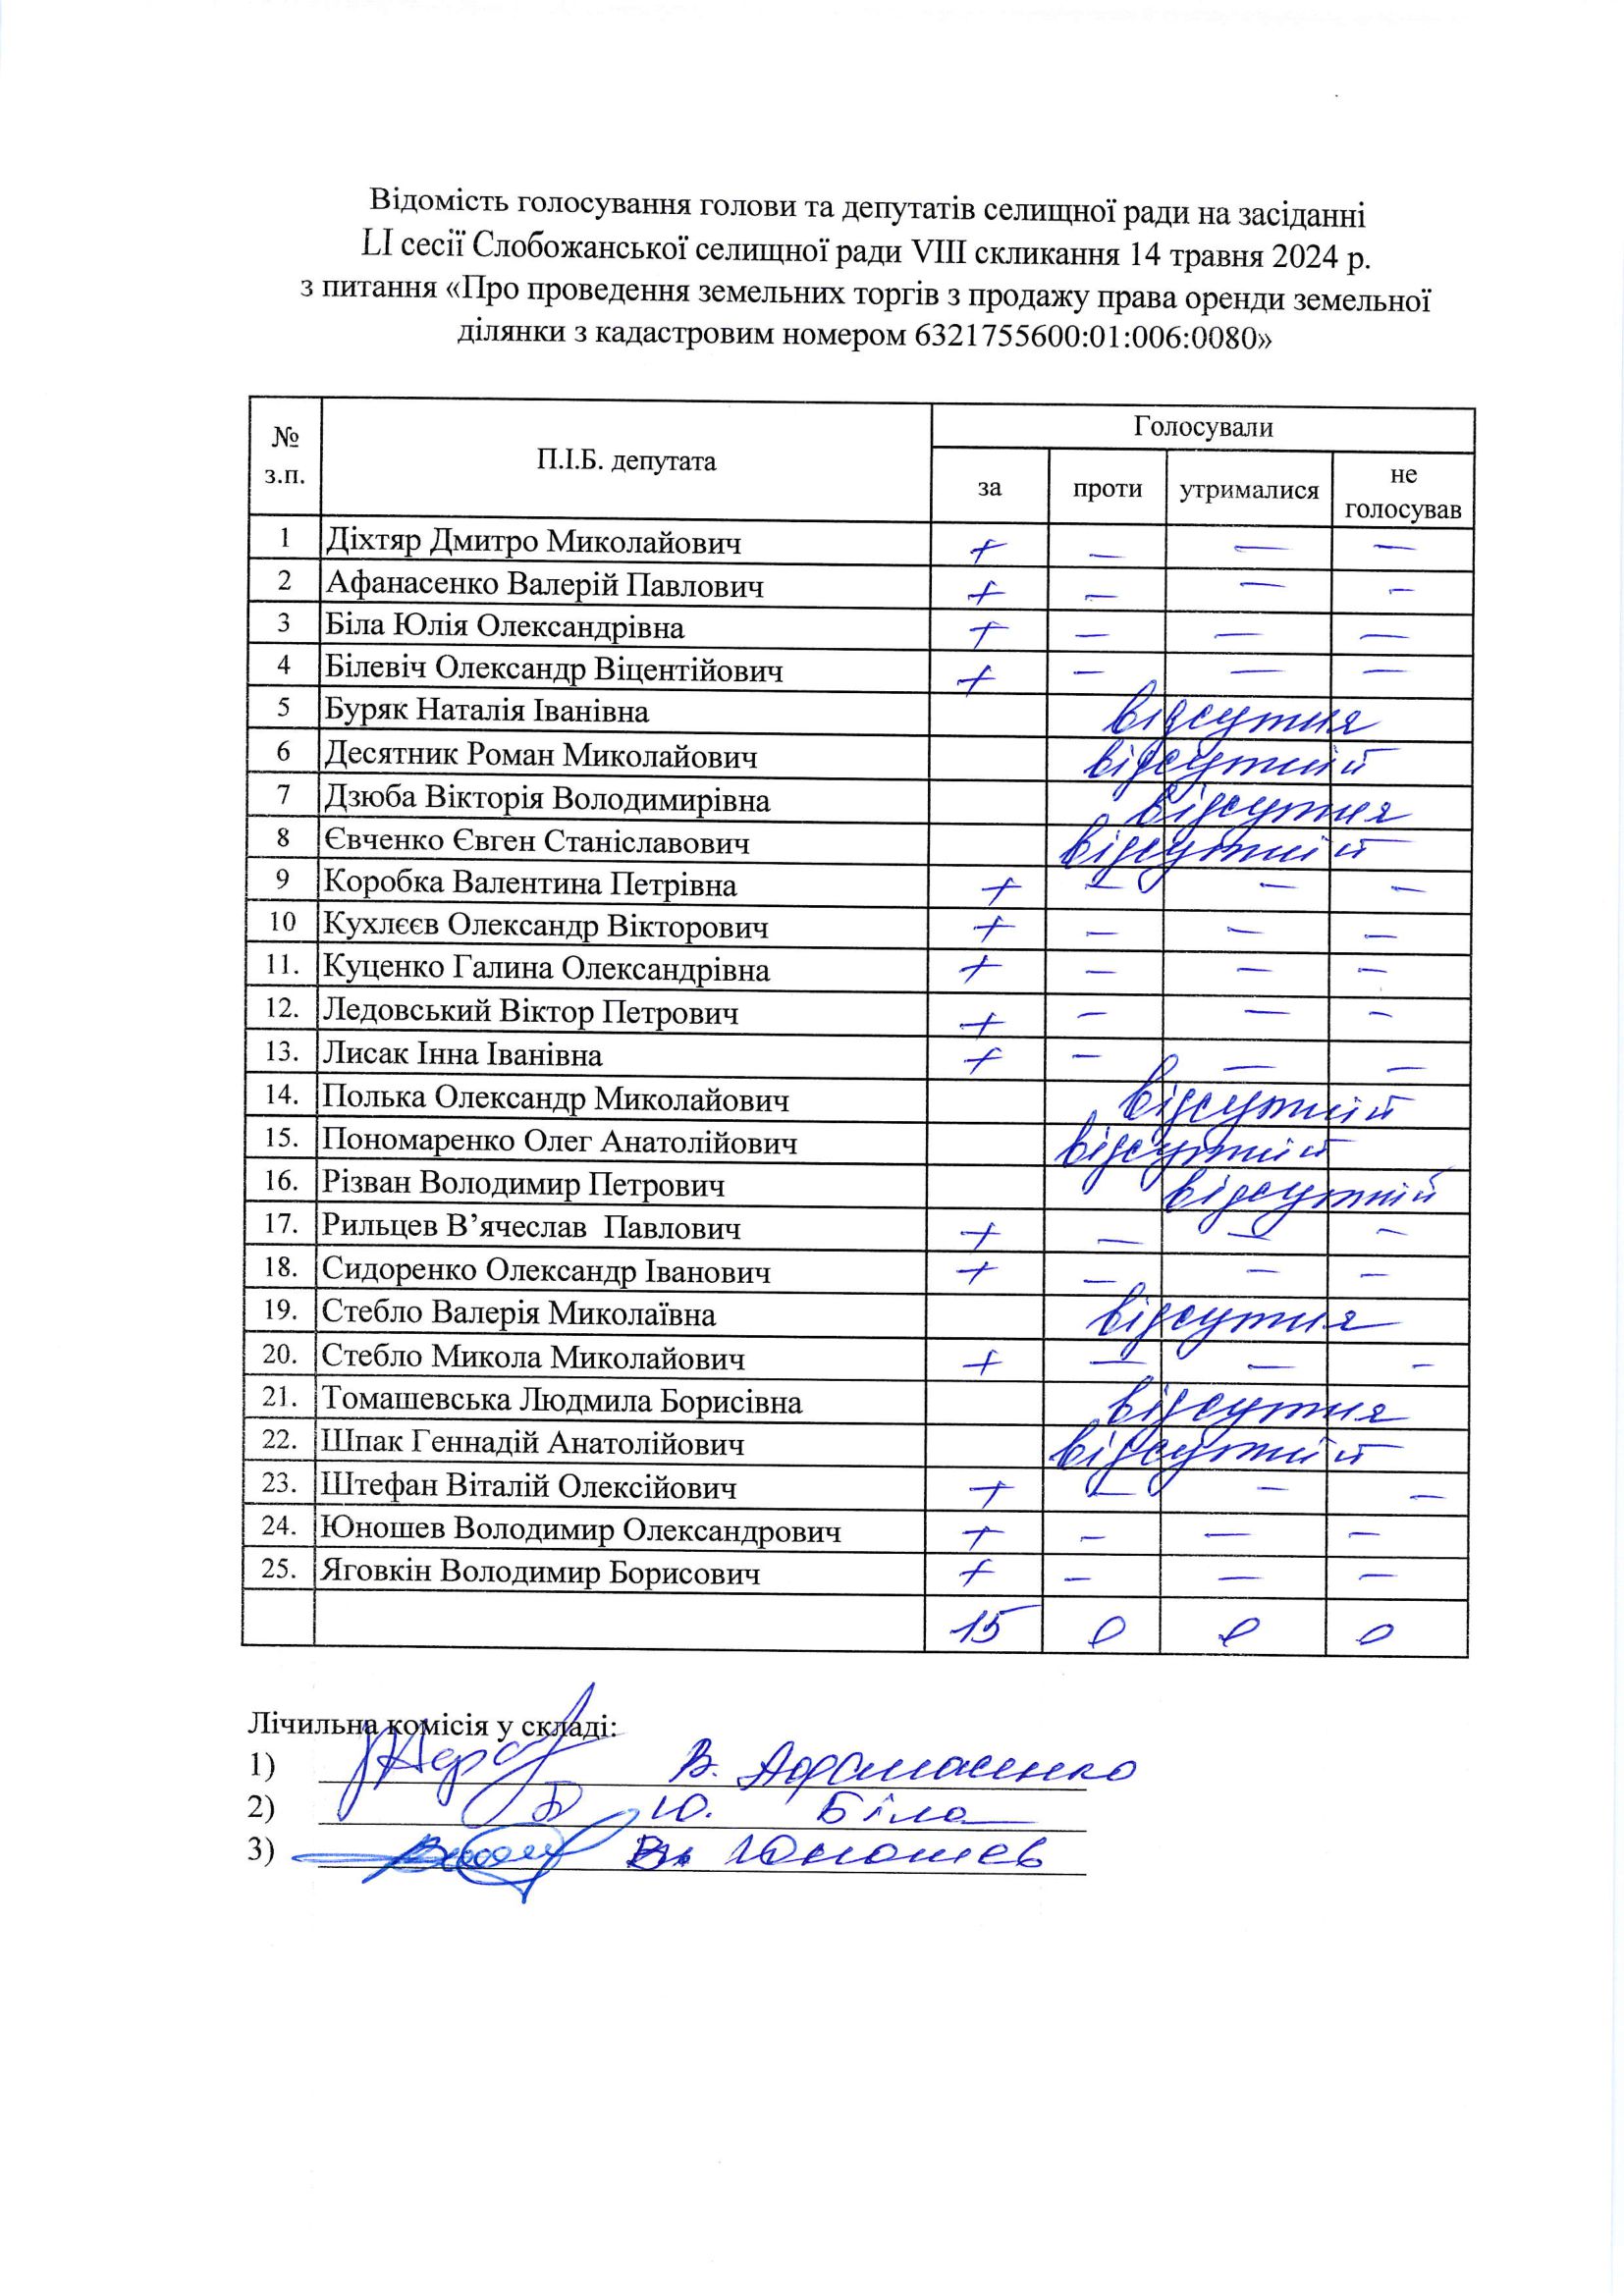 Відомість голосування голови та депутатів селищної ради на засіданні
LI сесії Слобожанської селищної ради VIII скликання 14 травня 2024 р.
з питання «Про проведення земельних торгів з продажу права оренди земельної
ділянки з кадастровим номером 6321755600:01:006:0080»
№ з.п. П.І.Б. депутата Голосували
за проти утрималися не голосував
1 Діхтяр Дмитро Миколайович + — — —
2 Афанасенко Валерій Павлович + — — —
3 Біла Юлія Олександрівна + — — —
4 Білевіч Олександр Віцентійович + — — —
5 Буряк Наталія Іванівна відсутня
6 Десятник Роман Миколайович відсутній
7 Дзюба Вікторія Володимирівна відсутня
8 Євченко Євген Станіславович відсутній
9 Коробка Валентина Петрівна + — — —
10 Кухлєєв Олександр Вікторович + — — —
11. Куценко Галина Олександрівна + — — —
12. Ледовський Віктор Петрович + — — —
13. Лисак Інна Іванівна + — — —
14. Полька Олександр Миколайович відсутній
15. Пономаренко Олег Анатолійович відсутній
16. Різван Володимир Петрович відсутній
17. Рильцев В’ячеслав Павлович + — — —
18. Сидоренко Олександр Іванович + — — —
19. Стебло Валерія Миколаївна відсутня
20. Стебло Микола Миколайович + — — —
21. Томашевська Людмила Борисівна відсутня
22. Шпак Геннадій Анатолійович відсутній
23. Штефан Віталій Олексійович + — — —
24. Юношев Володимир Олександрович + — — —
25. Яговкін Володимир Борисович + — — —
15 0 0 0
Лічильна комісія у складі:
1) В. Афанасенко
2) Ю. Біла
3) Вл. Юношев